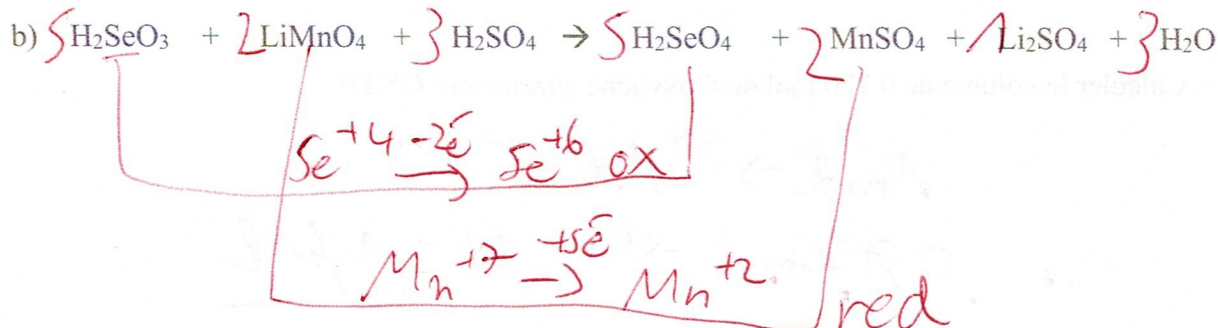 b) 5H₂SeO₃ + 2LiMnO₄ + 3H₂SO₄ → 5H₂SeO₄ + 2MnSO₄ + 1Li₂SO₄ + 3H₂O
Se⁺⁴ -2ē → Se⁺⁶ ox
Mn⁺⁷ +5ē → Mn⁺² red